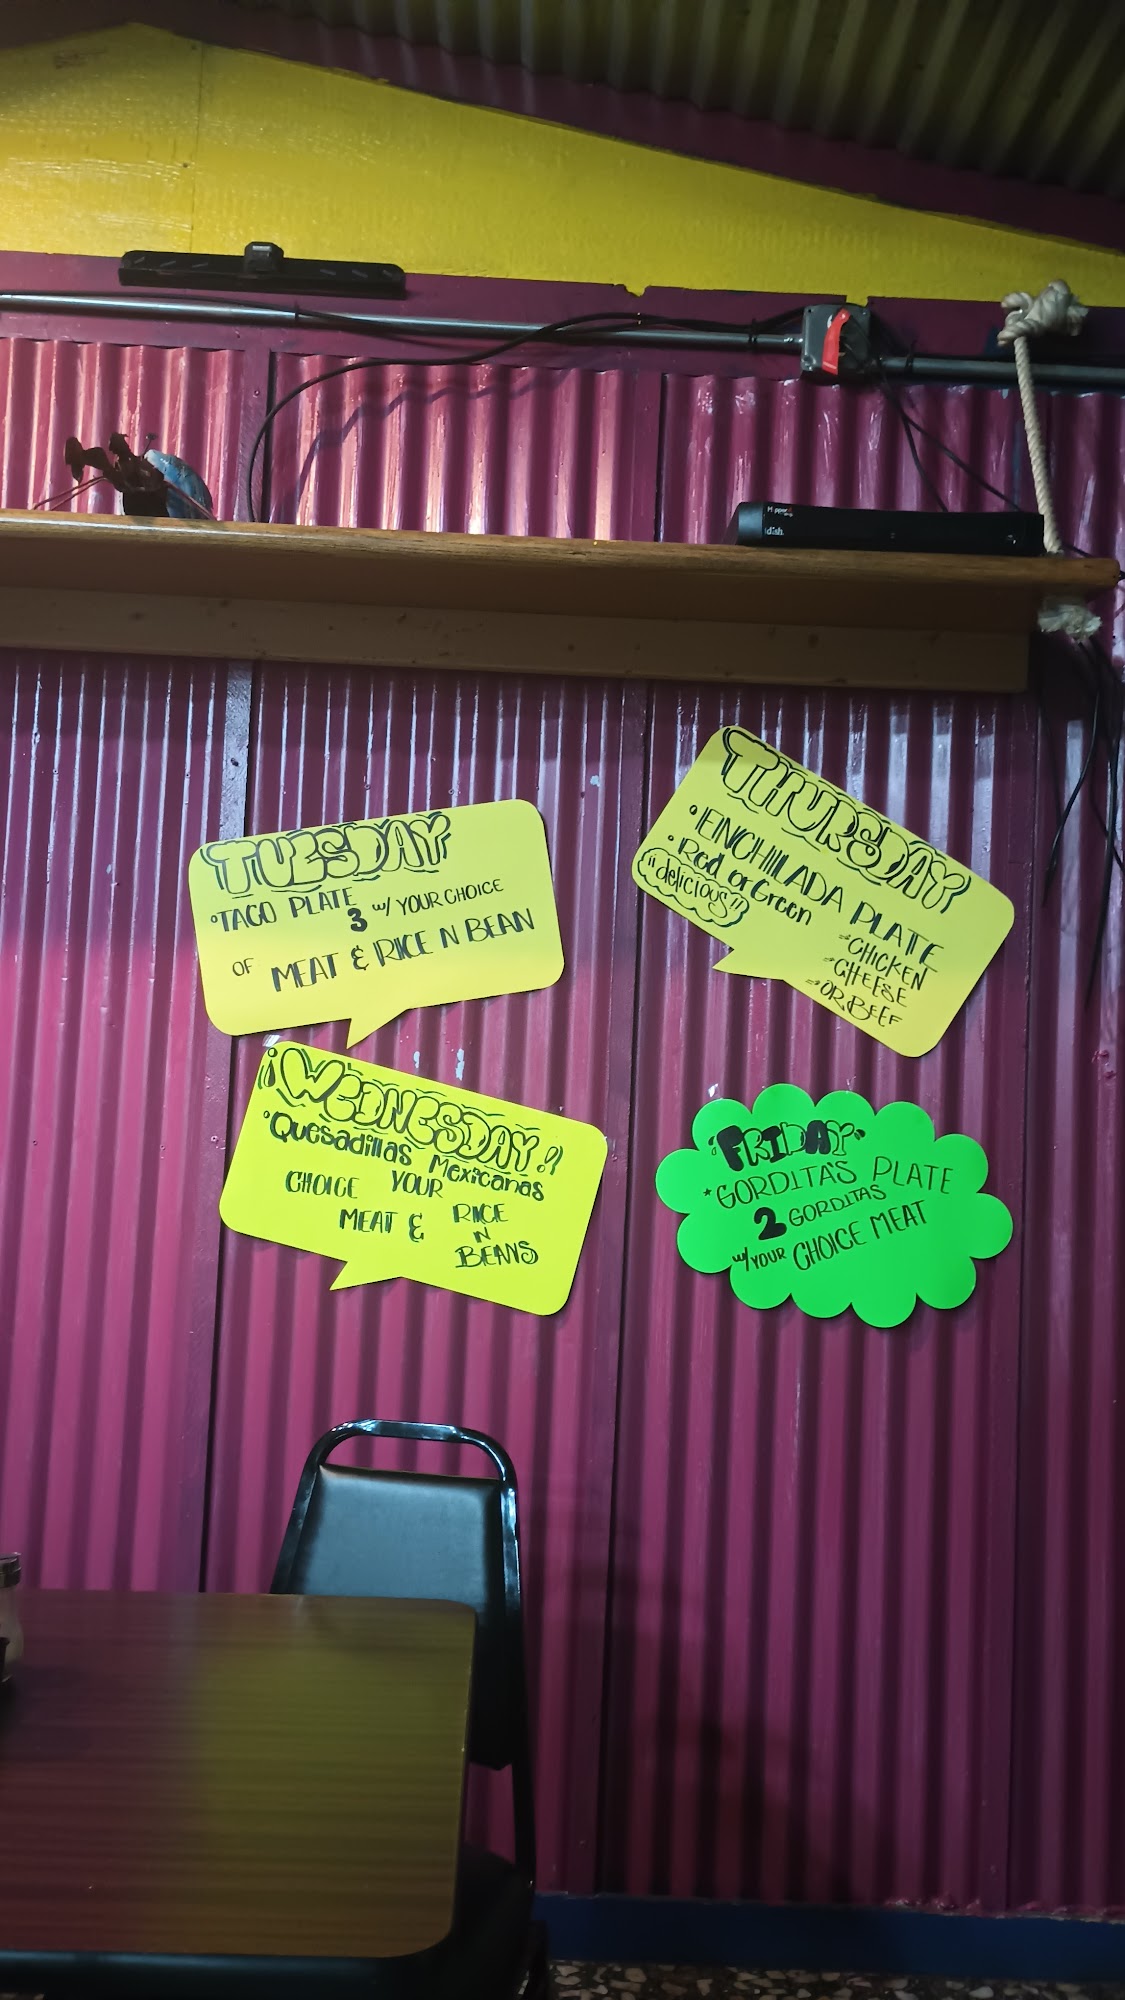 Hopper
dish
TUESDAY
°TACO PLATE
3 w/ YOUR CHOICE
OF MEAT & RICE N BEAN
THURSDAY
°ENCHILADA PLATE
°Red or Green
"delicious"
CHICKEN
CHEESE
OR BEEF
¡WEDNESDAY!!
°Quesadillas Mexicanas
CHOICE YOUR
MEAT & RICE
N
BEANS
FRIDAY
*GORDITA'S PLATE
2 GORDITAS
w/YOUR CHOICE MEAT